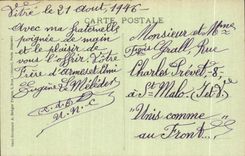 Vitré le 21 Août 1946
Avec ma fraternelle
poignée de main
et le plaisir de
vous l'offrir Votre
Frère d'Armes et Ami
Eugène Le
U.N.C
Monsieur et Mme
Frçois Grall, Rue
Charles Prévet-8-
à St Malo
Unis comme
au Front